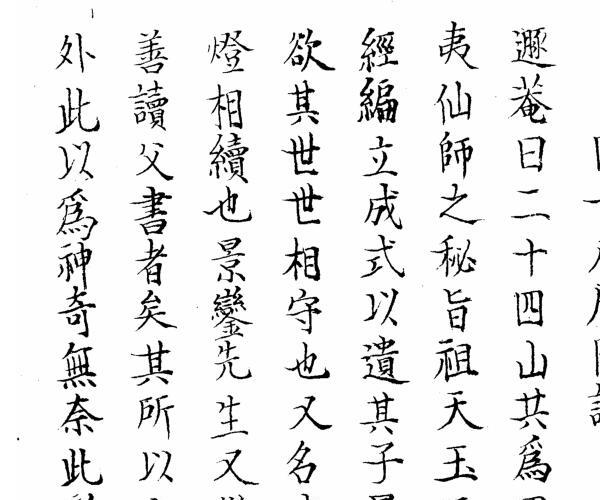 遯菴曰二十四山共爲
夷仙師之秘旨祖天玉
經編立成式以遺其子
欲其世世相守也又名
燈相續也景鑾先生又
善讀父書者矣其所以
外此以爲神奇無奈此